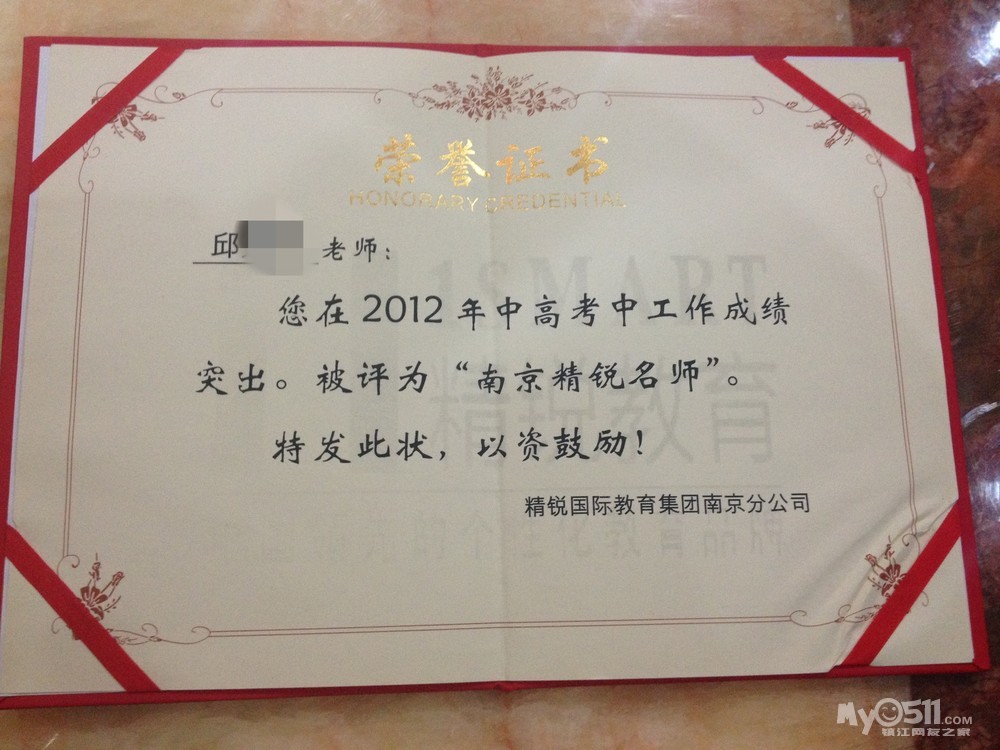 荣誉证书
HONORARY CREDENTIAL
邱 老师：
您在2012年中高考中工作成绩
突出。被评为“南京精锐名师”。
特发此状，以资鼓励！
精锐国际教育集团南京分公司
1SMART
精锐教育
的个性化教育品牌
MyO511.COM
镇江网友之家